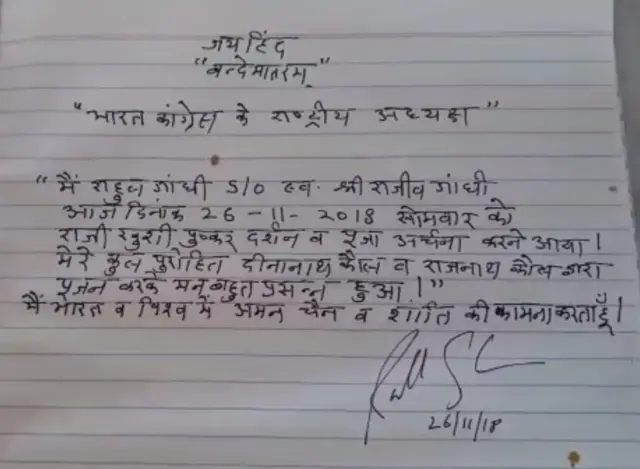 जय हिंद
"वन्देमातरम्"
"भारत कांग्रेस के राष्ट्रीय अध्यक्ष"
"मैं राहुल गांधी S/O स्व. श्री राजीव गांधी
आज दिनांक 26-11-2018 सोमवार को
राजी खुशी पुष्कर दर्शन व पूजा अर्चना करने आया।
मेरे कुल पुरोहित दीनानाथ कौल व राजनाथ कौल द्वारा
पूजन करके मन बहुत प्रसन्न हुआ।"
मैं भारत व विश्व में अमन चैन व शांति की कामना करता हूँ।
26/11/18